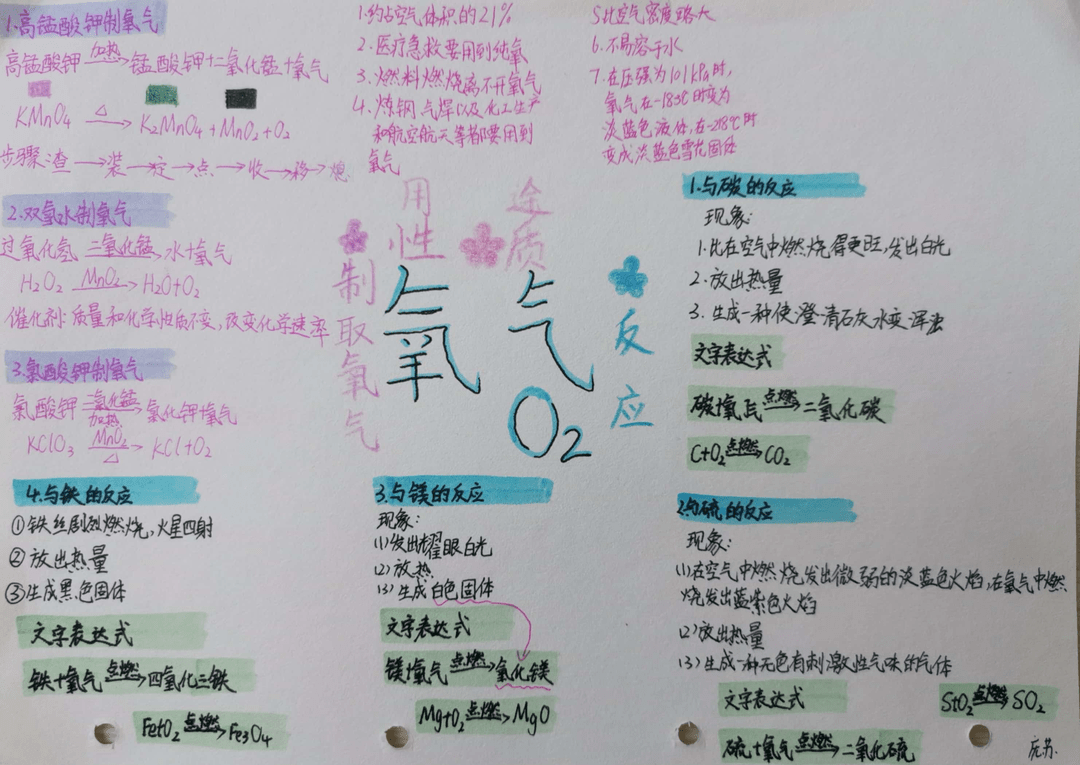 1.高锰酸钾制氧气
高锰酸钾 加热→ 锰酸钾+二氧化锰+氧气
KMnO₄ △→ K₂MnO₄+MnO₂+O₂
步骤:查→装→定→点→收→移→熄
2.双氧水制氧气
过氧化氢 二氧化锰→ 水+氧气
H₂O₂ MnO₂→ H₂O+O₂
催化剂:质量和化学性质不变,改变化学速率
3.氯酸钾制氧气
氯酸钾 二氧化锰 加热→ 氯化钾+氧气
KClO₃ MnO₂ △→ KCl+O₂
1.约占空气体积的21%
2.医疗急救要用到纯氧
3.燃料燃烧离不开氧气
4.炼钢 气焊以及化工生产
和航空航天等都要用到
氧气
5比空气密度略大
6.不易容于水
7.在压强为101kPa时,
氧气在-183℃时变为
淡蓝色液体,在-218℃时
变成淡蓝色雪花固体
用途
性质
制取氧气
氧气
O₂
反应
1.与碳的反应
现象:
1.比在空气中燃烧得更旺,发出白光
2.放出热量
3.生成一种使澄清石灰水变浑浊
文字表达式
碳+氧气 点燃→ 二氧化碳
C+O₂ 点燃→ CO₂
2.与硫的反应
现象:
(1)在空气中燃烧发出微弱的淡蓝色火焰,在氧气中燃
烧发出蓝紫色火焰
(2)放出热量
(3)生成一种无色有刺激性气味的气体
文字表达式
S+O₂ 点燃→ SO₂
硫+氧气 点燃→ 二氧化硫
3.与镁的反应
现象:
(1)发出耀眼白光
(2)放热
(3)生成白色固体
文字表达式
镁+氧气 点燃→ 氧化镁
Mg+O₂ 点燃→ MgO
4.与铁的反应
①铁丝剧烈燃烧,火星四射
②放出热量
③生成黑色固体
文字表达式
铁+氧气 点燃→ 四氧化三铁
Fe+O₂ 点燃→ Fe₃O₄